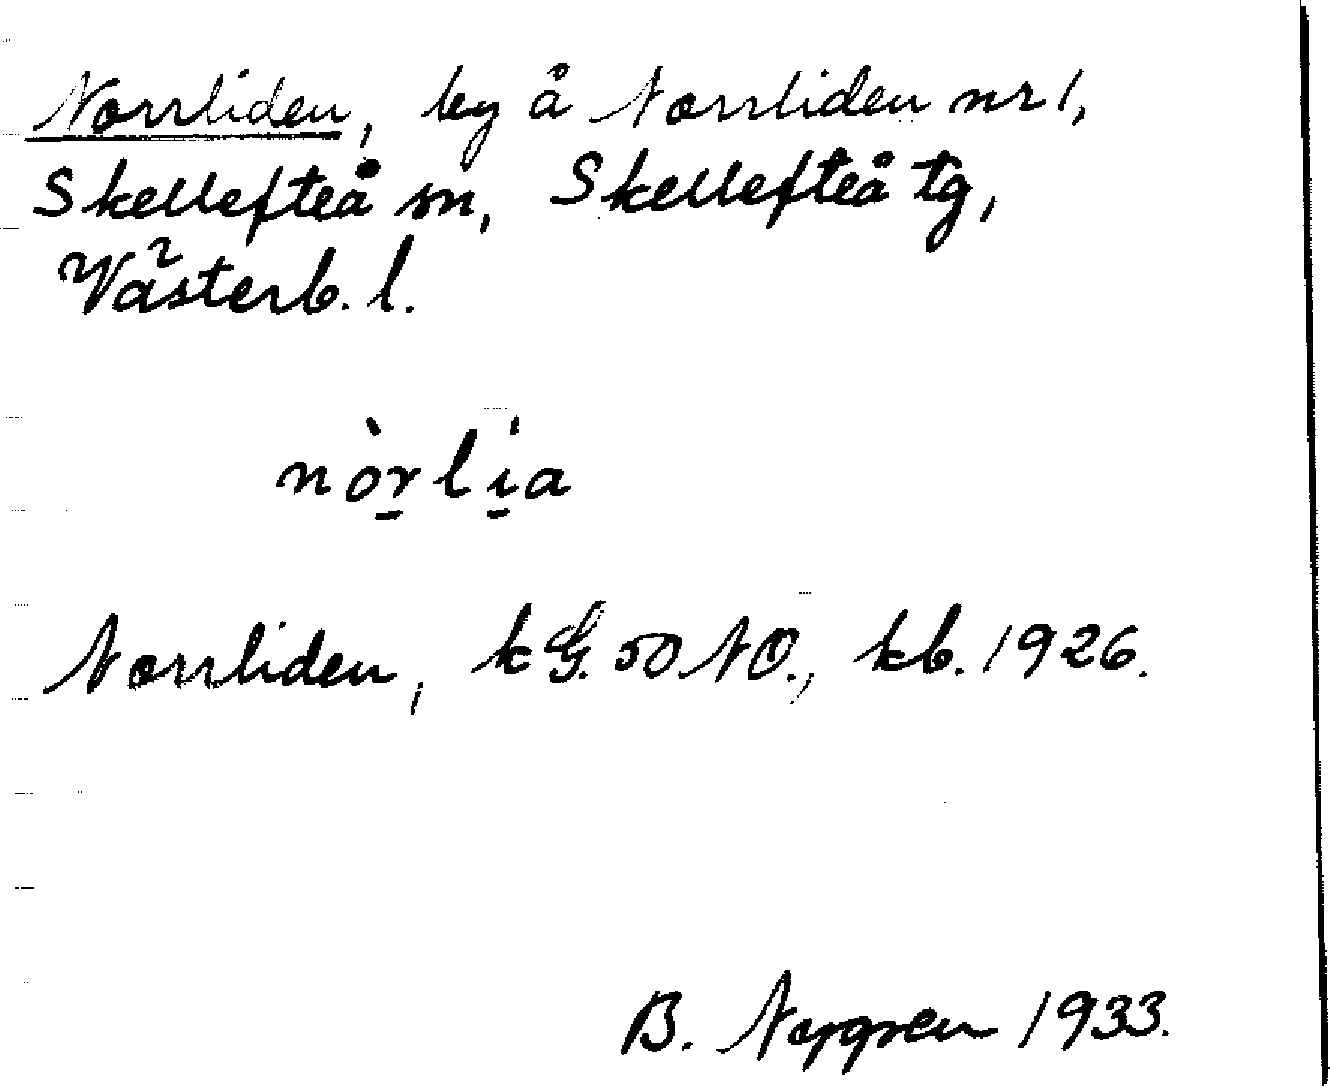 Norrliden, by å Norrliden nr 1,
Skellefteå sn, Skellefteå tg,
Västerb. l.
nòr̲li̲̍a
Norrliden, kG. 50 NO., kb. 1926.
B. Nygren 1933.